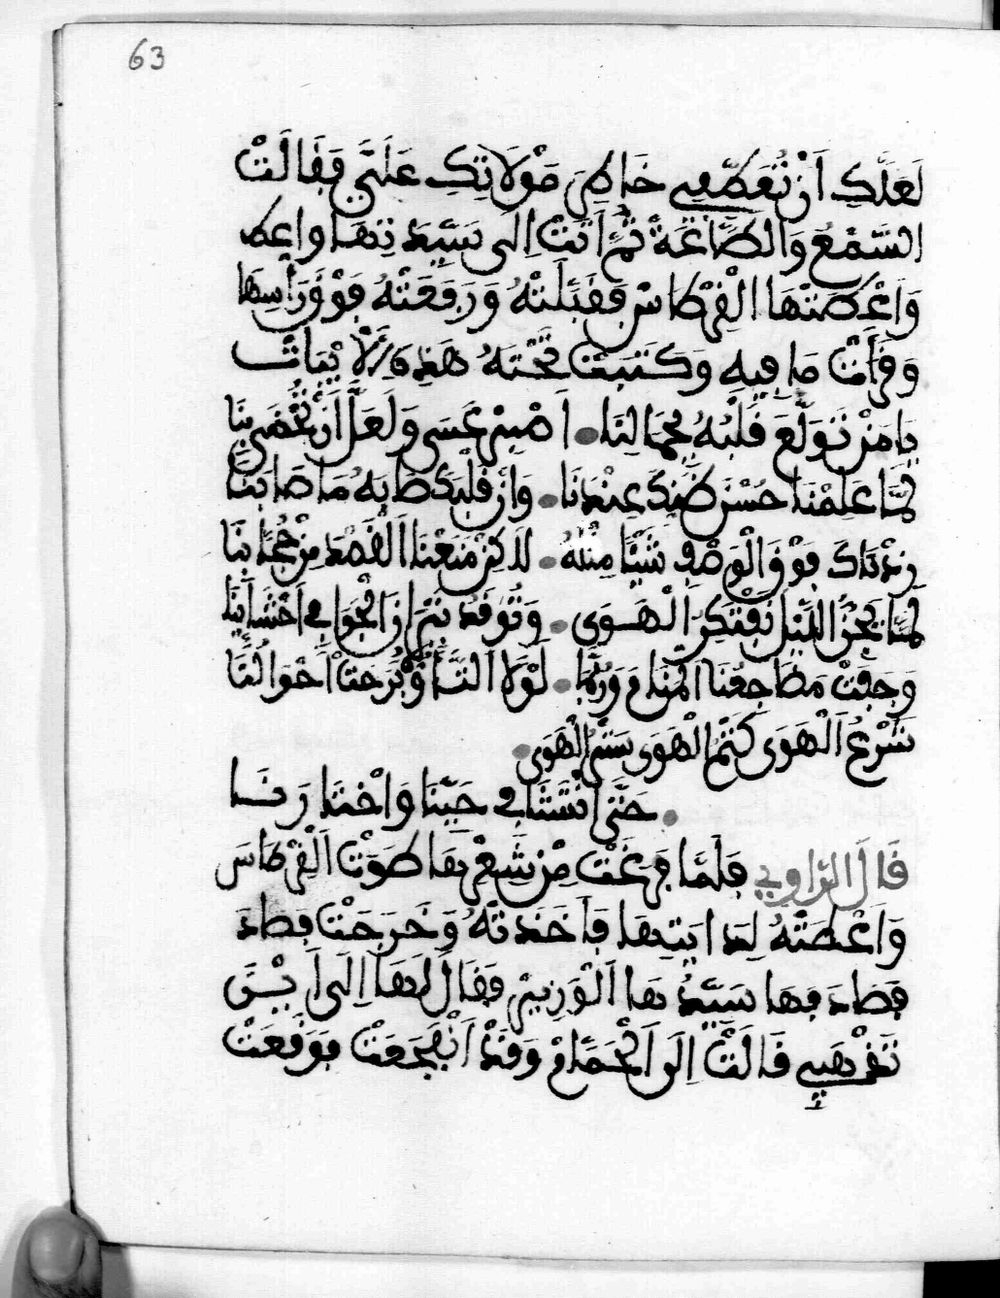 63
لَعَلَّكِ اَنْ تُعَطِّفِي خَاطِرَ مَوْلَاتِكِ عَلَيَّ فَقَالَتْ
السَّمْعُ وَالطَّاعَةُ ثُمَّ اَتَتْ اِلَى سَيِّدَتِهَا واعط
وَاَعْطَتْهَا الْقِرْطَاسْ فَقَبَّلَتْهُ وَرَفَعَتْهُ فَوْقَ رَاسِهَا
وَقَرَأَتْ مَا فِيهِ وَكَتَبَتْ تَحْتَهُ هَذِهِ الْاَبْيَاتْ
يَا مَنْ تَوَلَّعَ قَلْبُهُ بِجَمَالِنَا اَصْبِرْ عَسَى وَلَعَلَّ اَنْ تَحْضَى بِنَا
لَمَّا عَلِمْنَا حُسْنَ عِنْدَنَا وَاَنْ قَلْبَكَ صَابَهُ مَا صَابَنَا
زِدْنَاكَ فَوْقَ الْوَصْفِ شَيْئًا مِثْلَهُ لَاكِنْ مَنَعْنَا الْقَصْدَ مِنْ حُجَّابِنَا
لَمَّا يَجُنُّ اللَّيْلُ الْهَوَى وَتُوقَدُ نِيرَانُ الْجَوَا فِي اَحْشَائِنَا
وَجَفَتْ مَضَاجِعُنَا الْمَنَامَ وَرُبَّمَا اَحْوَالُنَا
شَرْعُ الْهَوَى كَتْمُ الْهَوَى سَتْرُ الْهَوَى
حَتَّى حَيِّنَا وَ
قَالَ الرَّاوِي فَلَمَّا فَرَغَتْ مِنْ شِعْرِهَا طَوَتْ الْقِرْطَاسَ
وَاَعْطَتْهُ لِدَايَتِهَا فَاَخَذَتْهُ وَخَرَجَتْ فصَادَ
فصَادَفَهَا سَيِّدُهَا الْوَزِيرْ فَقَالَ لَهَا اِلَى اَيْنَ
تَذْهَبِي قَالَتْ اِلَى الْحَمَّامْ وَقَدْ اَنْفَجَعَتْ فَوَقَعَتْ